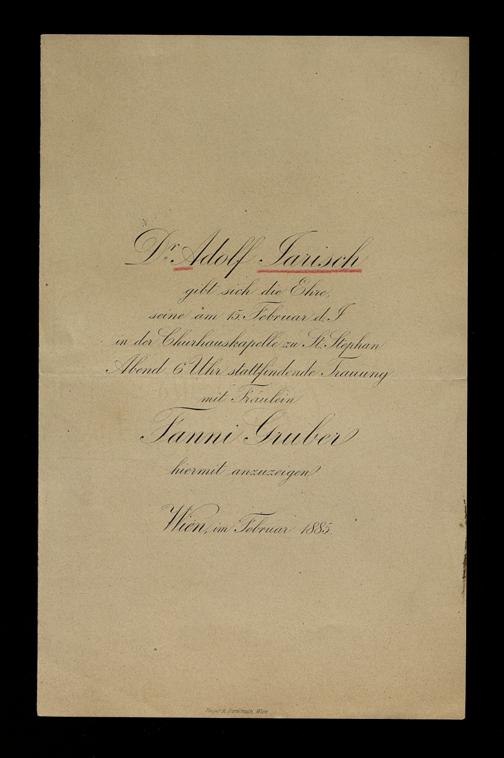 Dr. Adolf Jarisch
gibt sich die Ehre,
seine am 15. Februar d. J.
in der Churhauskapelle zu St. Stephan
Abend 6 Uhr stattfindende Trauung
mit Fräulein
Fanni Gruber
hiermit anzuzeigen
Wien, im Februar 1885.
Wien